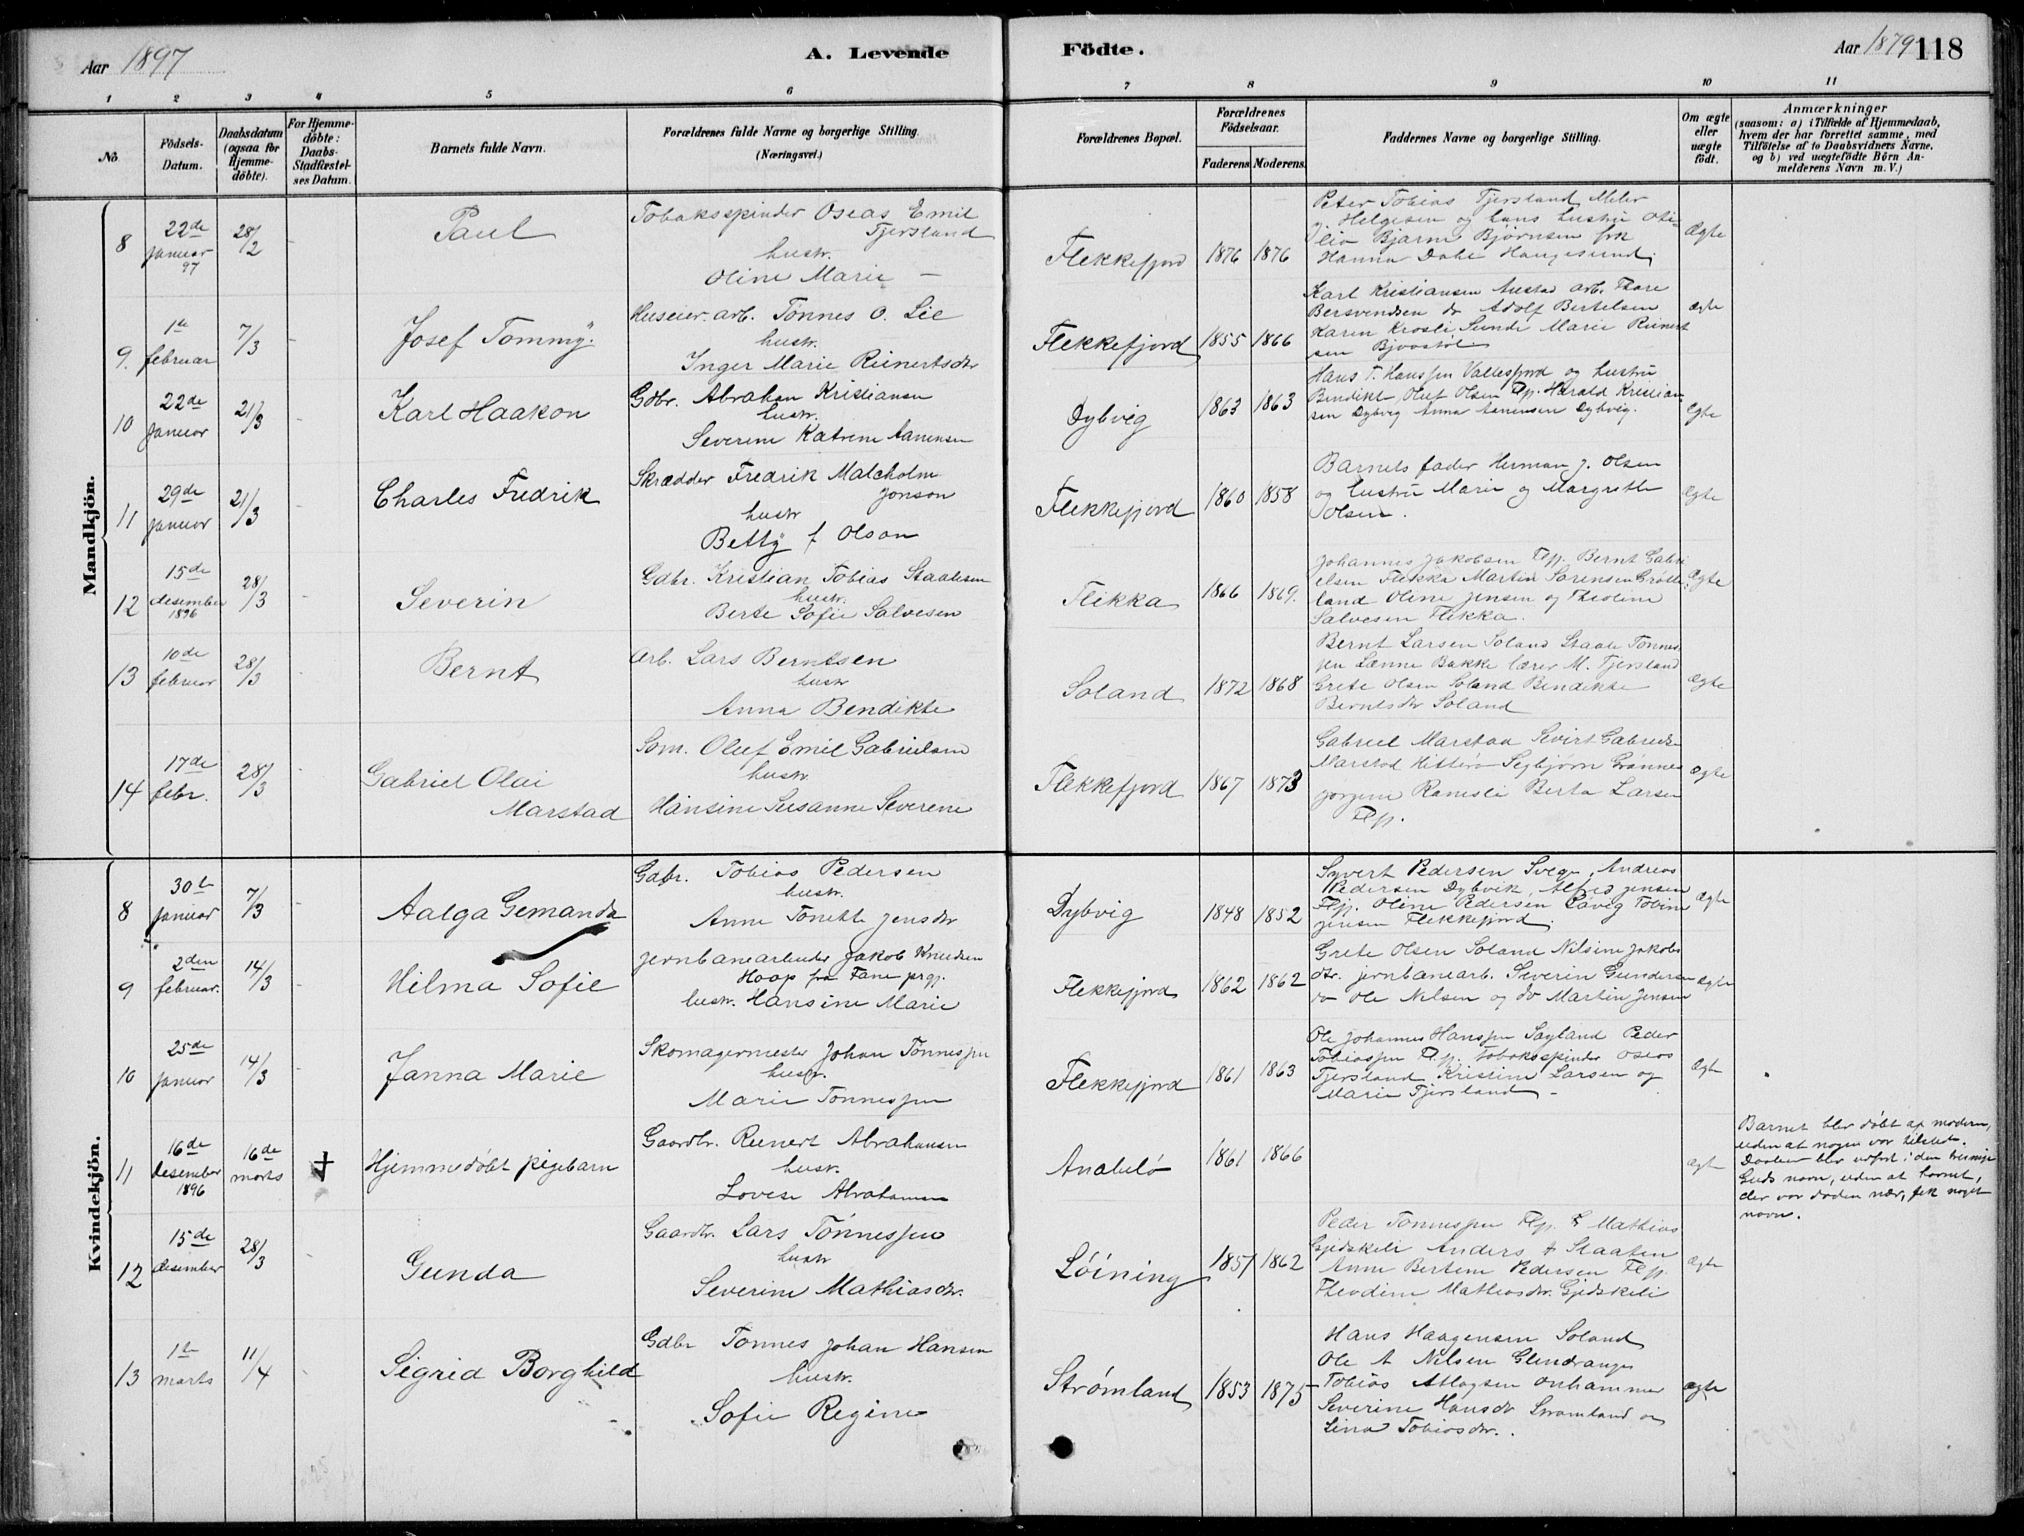 Aar 1897
A. Levende
Födte.
Aar 1879
118
1 2 3 4 5 6 7 8 9 10 11
No
Födsels-Datum.
Daabsdatum (ogsaa for Hjemme-döbte).
For Hjemme-döbte: Daabs-Stadfæstel-ses Datum.
Barnets fulde Navn.
Forældrenes fulde Navne og borgerlige Stilling. (Næringsvei.)
Forældrenes Bopæl.
Forældrenes Födselsaar.
Faderens. Moderens.
Faddernes Navne og borgerlige Stilling.
Om ægte eller uægte födt.
Anmærkninger
(saasom: a) i Tilfælde af Hjemmedaab,
hvem der har forrettet samme, med
Tilföielse af to Daabsvidners Navne,
og b) ved uægtefödte Börn An-
melderens Navn m. V.)
Mandkjön.
8 22de Januar 97 28/2 Paul
Tobaksspinder Oseas Emil
Tjersland
hustr.
Oline Marie —
Flekkefjord 1876 1876
Peter Tobias Tjersland Meler
Helgesen og hans hustru
Bjarne Bjørnsen frk
Hanna Dahl Haugesund.
Ægte
9. 1te februar 7/3 Josef Tommy.
Huseier. arb. Tønnes O. Lie
hustr.
Inger Marie Reinertsdtr
Flekkefjord 1855 1866
Karl Kristiansen Austad arb. Thore
Bersvendsen do Adolf Bertelsen
Karen Krosli Sunde Marie Reinert
sen
Ægte
10 22de Januar 21/3 Karl Haakon
Gdbr. Abraham Kristiansen
hustr.
Severine Katrene Aanensen
Dybvig 1863 1863
Hans T. Hanssen Vallesfjord og hustru
Bendikte, Oluf Olsen Flfj. Harald Kristian
sen Dybvig Anna Aanensen Dybvig.
Ægte
11 29de Januar 21/3 Charles Fredrik
Skrædder Fredrik Malcholm
Jonson
hustr
Betty f Olson
Flekkefjord 1860 1858
Barnets fader Herman J. Olsen
og hustru Marie og Margrethe
Olsen.
Ægte
12 15de desember 1896 28/3 Severin
Gdbr. Kristian Tobias Staalesen
hustr.
Berte Sofie Salvesen
Flikka 1866 1869.
Johannes Jakobsen Flfj. Bernt Gabri
elsen Flikka Martin Sørensen Grøtte
land Oline Jensen og Theoline
Salvesen Flikka.
Ægte
13 10de februar 28/3 Bernt
Arb. Lars Berntsen
hustr
Anna Bendikte
Soland 1872 1868
Bernt Larsen Soland Staale Tønnes
sen Lænne Bakke lærer M. Tjersland
Grete Olsen Soland Bendikte
Berntsdtr Soland
Ægte
14 17de febr. 28/3 Gabriel Olai
Marstad
Søm. Oluf Emil Gabrielsen
hustr
Hansine Susanne Severene
Flekkefjord 1867 1873
Gabriel Marstad Sivert Gabriels
Marstad Hitterø Sigbjørn Grønnes
Jørgine Ramsli Berta Larsen
Flfj.
Ægte
Kvindekjön.
8 30te Januar 7/3 Aalga Gemanda
Gdbr. Tobias Pedersen
hustr.
Anne Tonette Jensdtr
Dybvig 1848 1852
Syvert Pedersen Svege, Andreas
Pedersen Dybvik, Alfred Jensen
Flfj. Oline Pedersen Løvig Tobine
Jensen Flekkefjord.
Ægte
9 2den februar. 14/3 Hilma Sofie
Jernbanearbeider Jakob Knudsen
Hoop fra Fane prgj.
hustr. Hansine Marie
Flekkefjord 1862 1862
Grete Olsen Soland Nilsine Jakobs
dtr. jernbanearb. Severin Gundersen
do Ole Nilsen og do Martin Jensen
Ægte
10 25de Januar 14/3 Janna Marie
Skomagermester Johan Tønnessen
hustr.
Marie Tønnessen
Flekkefjord 1861 1863
Ole Johannes Hanssen Søyland Peder
Tobiassen Flfj. tobaksspinder Oseas
Tjersland Kristine Larsen og
Marie Tjersland —
Ægte
11 16de desember 1896 16de marts † Hjemmedøbt pigebarn
Gaardbr. Reinert Abrahamsen
hustr.
Lovise Abrahamsen
Anabelø 1861 1866
ægte
Barnet blev døbt af moderen,
uden at nogen var tilstede.
Daaben blev udført i den treenige
Guds navn, uden at barnet,
der var døden nær, fik noget
navn.
12 15de desember 28/3 Gunda
Gaardbr. Lars Tønnessen
hustr
Severine Mathiasdtr.
Löining 1857 1862
Peder Tønnessen Flfj. Mathias
Gjedskeli Anders Staalen
Anne Bertine Pedersen Flfj.
Theodine Mathiasdtr. Gjedskeli
Ægte
13 1te marts 11/4 Sigrid Borghild
Gdbr Tønnes Johan Hansen
hustr.
Sofie Regine
Strømland 1853 1875
Hans Haagensen Soland
Ole A Nilsen Glendrange
Tobias Atlagsen Onhammer
Severine Hansdtr Strømland og
Lina Tobiasdtr.
ægte